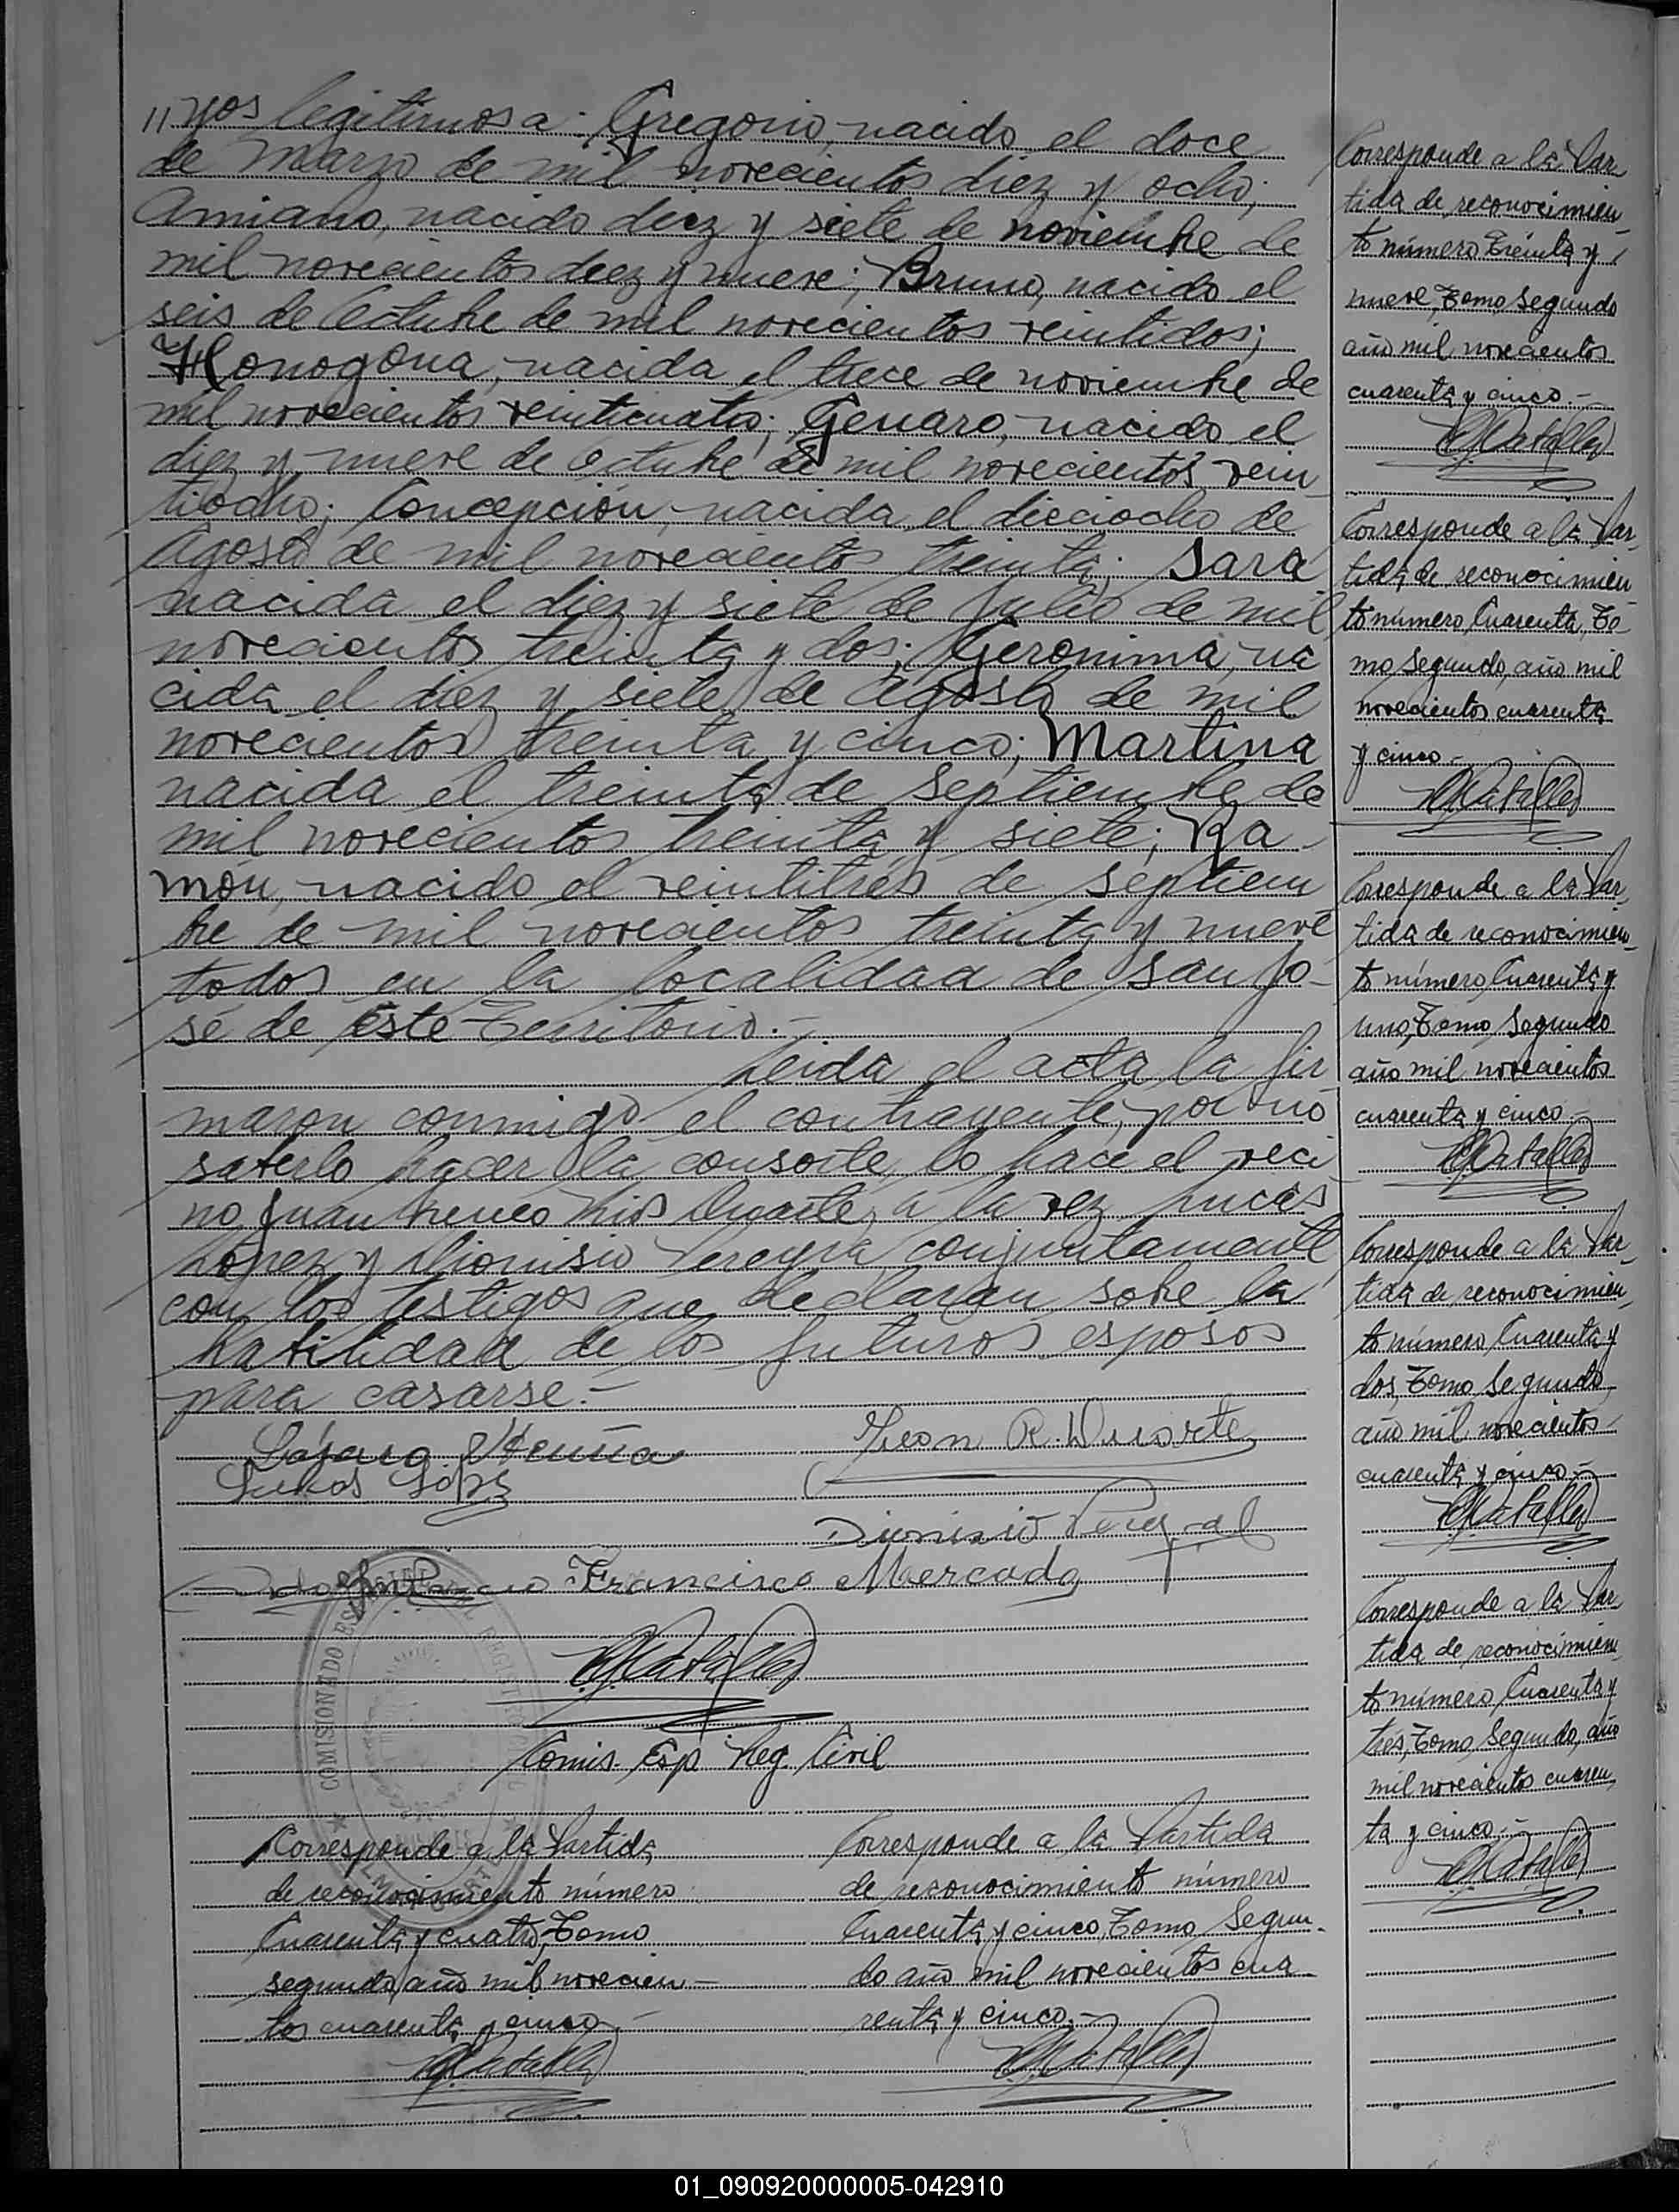 "yos legítimos a: Gregorio, nacido el doce
de Marzo de mil novecientos diez y ocho;
Amiano, nacido diez y siete de noviembre de
mil novecientos diez y nueve; Bruno, nacido el
seis de Octubre de mil novecientos veintidos;
Honogona, nacida el trece de noviembre de
mil novecientos veinticuatro; Genaro, nacido el
diez y nueve de Octubre de mil novecientos vein
tiocho; Concepción, nacida el dieciocho de
Agosto de mil novecientos treinta; Sara
nacida el diez y siete de Julio de mil
novecientos treinta y dos; Geronima, na
cida el diez y siete de Agosto de mil
novecientos treinta y cinco; Martina
nacida el treinta de Septiembre de
mil novecientos treinta y siete; Ra-
món, nacido el veintitrés de Septiem
bre de mil novecientos treinta y nueve
todos en la localidad de San Jo-
sé de Este Territorio.-
Leída el acta la fir
maron conmigo el contrayente, por no
saberlo hacer la consorte, lo hace el veci
no Juan Duarte, a la vez Lucas
López y Dionisio Pereyra, conjuntamente
con los testigos que declaran sobre la
habilidad de los futuros esposos
para casarse.-
Lázaro
Juan R. Duarte
Lukas Lopz
Dionisio
Francisco Mercado
COMISIONADO
REGISTRO
Comis. Esp. Reg. Civil
Corresponde a la Partida
de reconocimiento número
Cuarenta y cuatro, Tomo
segundo, año mil novecien-
tos cuarenta y cinco.-
Corresponde a la Partida
de reconocimiento número
Cuarenta y cinco, Tomo Segun-
do año mil novecientos cua
renta y cinco.-
Corresponde a la Par
tida de reconocimien
to número Treinta y
nueve, Tomo Segundo
año mil novecientos
cuarenta y cinco.-
Corresponde a la Par
tida de reconocimien
to número Cuarenta, To
mo Segundo, año mil
novecientos cuarenta
y cinco.-
Corresponde a la Par
tida de reconocimien
to número Cuarenta y
uno, Tomo Segundo
año mil novecientos
cuarenta y cinco.-
Corresponde a la Par
tida de reconocimien
to número Cuarenta y
dos, Tomo Segundo
año mil novecientos
cuarenta y cinco.-
Corresponde a la Par
tida de reconocimien
to número Cuarenta y
trés, Tomo Segundo, año
mil novecientos cuaren
ta y cinco.-
01_090920000005-042910